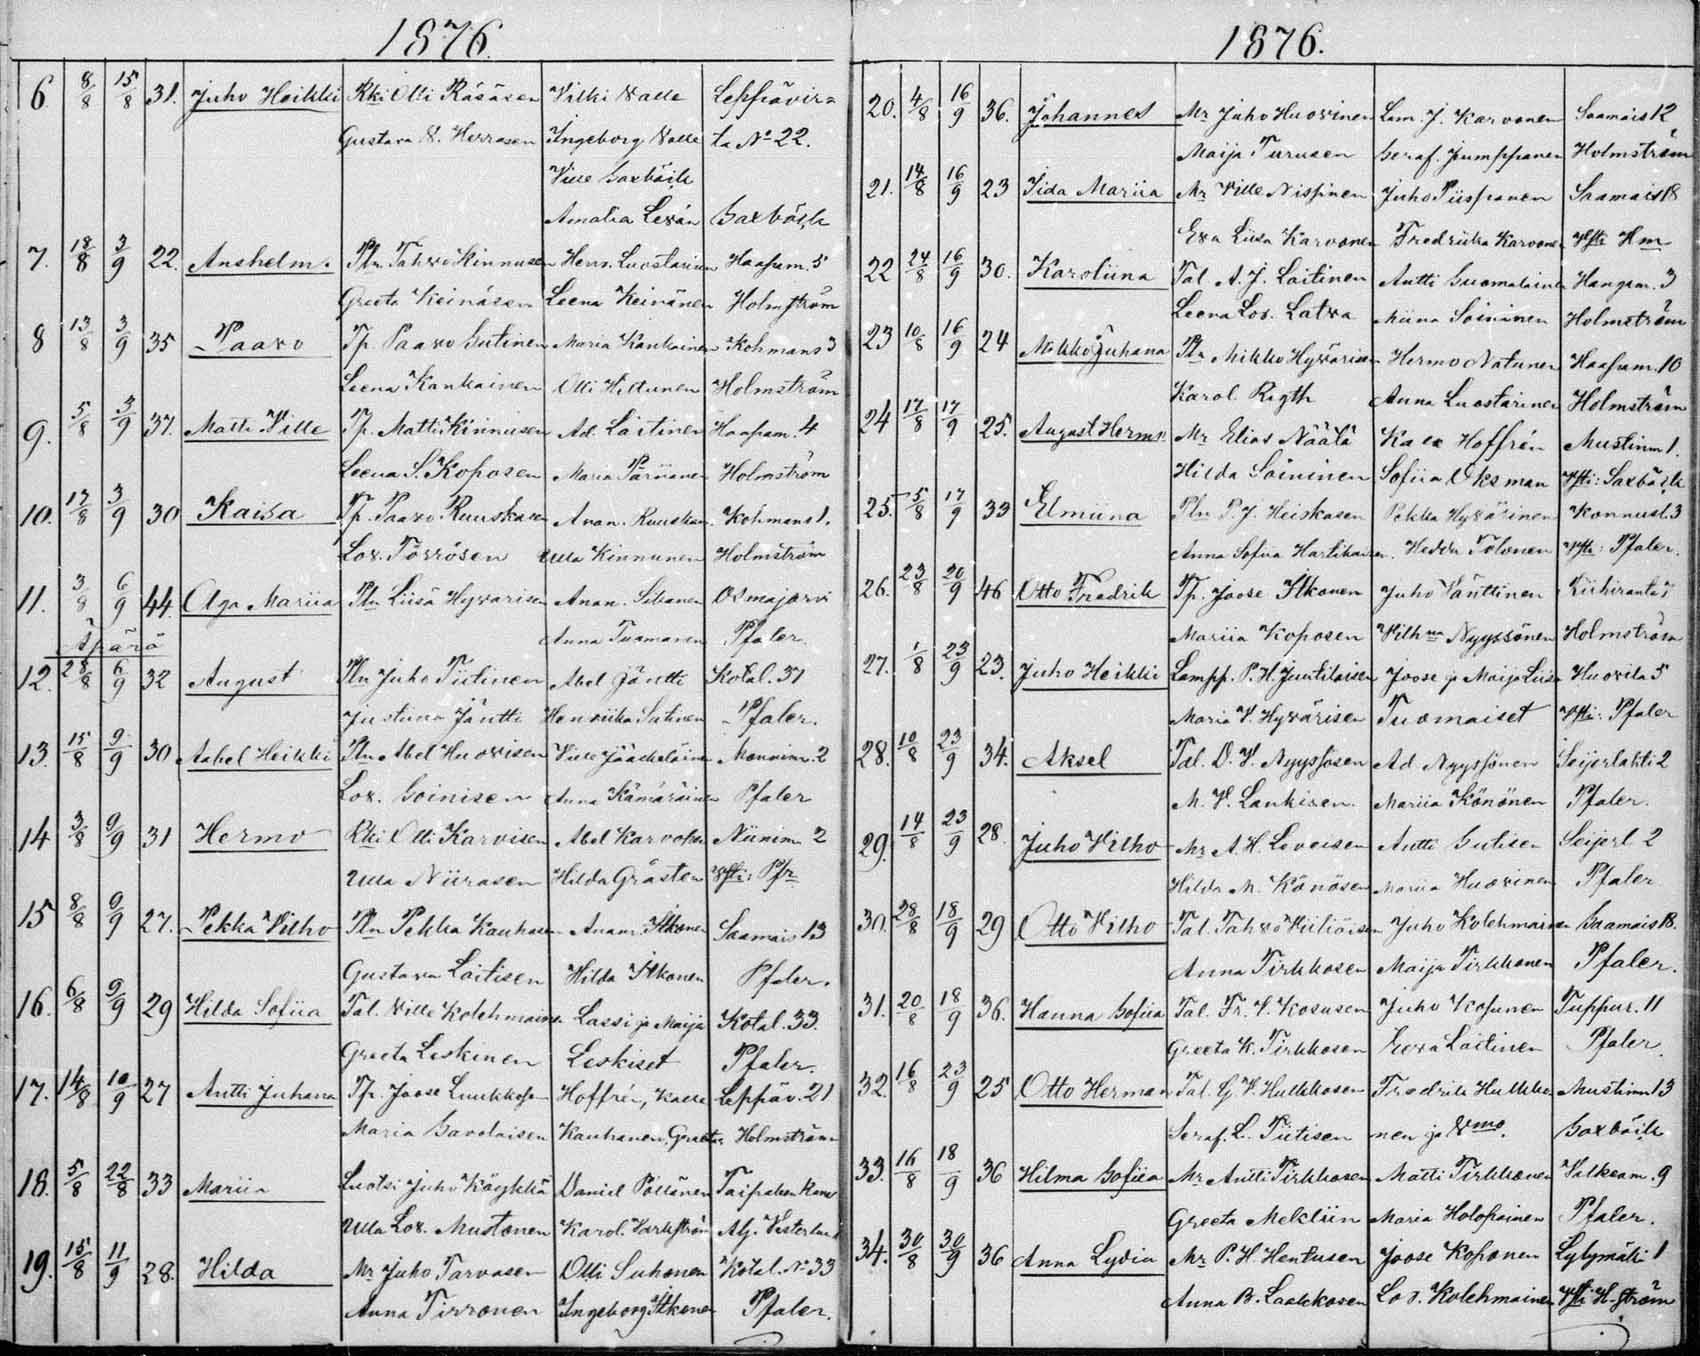 1876.
6 8/8 15/8 31. Juho Heikki Rki Olli Räsäsen Vilki Valle Leppävir=
Gustava V. Herrasen Ingeborg Valle ta No 22.
Ville Saxbäck
Amalia Lexán Saxbäck
7. 18/8 3/9 22. Anshelm. Tln Tahvo Kinnusen Herm. Luostarinen Haapam. 5
Greeta Keinäsen Leena Keinänen Holmström
8 13/8 3/9 35 Paavo Tp. Paavo Sutinen Maria Kankainen Kohmans 3
Leena Kankainen Olli Hiltunen Holmström
9. 5/8 3/9 37. Matti Ville Tp. Matti Kinnusen Ad. Laitinen Haapam. 4
Leena S. Koposen Maria Holmström
10. 17/8 3/9 30 Kaisa Tp. Paavo Ruuskasen Anan. Ruuskan. Kohmans 1.
Lov. Törrösen Ulla Kinnunen Holmström
11. 3/8 6/9 44. Aga Mariia Tln Liisa Hyvärisen Anan. Osmajärvi
Anna Tuomanen Pfaler
Äpärä
12. 28/8 6/9 32 August Tln Juho Tiitinen Abel Jäntti Kotal. 37
Justiina Jäntti Henriika Sutinen Pfaler.
13. 15/8 9/9 30 Aabel Heikki Tln Abel Huovisen Ville Jääskeläinen Manninm. 2
Lov. Soinisen Anna Kämäräinen Pfaler
14 3/8 9/9 31 Hermo Rki Olli Karvisen Abel Karvonen Niinim 2
Ulla Niirasen Hilda Gråsten Vfti: Pfr
15 8/8 9/9 27. Pekka Vilho Tln Pekka Kauhasen Anan. Itkonen Saamais 13
Gustava Laitisen Hilda Itkonen Pfaler.
16. 6/8 9/9 29 Hilda Sofiia Tal. Ville Kolehmainen Lassi ja Maija Kotal. 33.
Greeta Leskinen Leskiset Pfaler.
17. 14/8 10/9 27 Antti Juhana Tp. Joose Luukkosen Hoffrén, Kalle Leppäv. 21
Maria Savolaisen Kauhanen, Greeta Holmström
18. 5/8 22/8 33 Mariia Luotsi Juho Käyhkö Daniel Pöllänen Taipaleen Kana
Ulla Lov. Mustonen Karol. Alj. Vesterlund
19. 15/8 11/9 28. Hilda Mr Juho Tarvasen Olli Suhonen Kotal. No 33
Anna Tirronen Ingeborg Itkonen Pfaler.
1876.
20. 4/8 16/9 36. Johannes Mr Juho Huovinen Lam. J. Karvonen Saamais 12
Maija Turusen Seraf. Jumppanen Holmström
21. 14/8 16/9 23 Iida Mariia Mr Ville Nissinen Juho Piispanen Saamais 18
Eva Liisa Karvonen Fredriika Karvonen Vfti Hm
22 24/8 16/9 30. Karoliina Tal. A. J. Laitinen Antti Suomalainen Hangam. 3
Leena Lov. Latva Miina Soininen Holmström
23 10/8 16/9 24 Mikko Juhana Tln Mikko Hyvärisen Hermo Natunen Haapam. 10
Karol. Rigth Anna Luostarinen Holmström
24 17/8 17/9 25. August Herm. Mr Elias Näätä Kalle Hoffrén Mustinm 1.
Hilda Soininen Sofiia Oksman Vfti: Saxbäck
25. 5/8 17/9 33 Elmiina Tln P. J. Heiskasen Pekka Hyvärinen Konnusl. 3
Anna Sofiia Hartikainen. Hedda Tolonen Vfti: Pfaler.
26. 23/8 20/9 46 Otto Fredrik Tp. Joose Itkonen Juho Vänttinen Riihiranta 7
Mariia Koposen Vilhna Nyyssönen Holmström
27. 1/8 23/9 23. Juho Heikki Lampp. P. H. Juutilaisen Joose ja Maija Liisa Huovila 5
Maria V. Hyvärisen Tuomaiset Vfti: Pfaler
28. 10/8 23/9 34. Aksel Tal. O. V. Nyyssösen Ad. Nyyssönen Seijerlahti 2
M. V. Lankisen. Mariia Könönen Pfaler.
29. 14/8 23/9 28. Juho Vilho Mr A. H. Loveisen Antti Sutisen Seijerl 2
Hilda M. Könösen Mariia Huovinen Pfaler
30. 28/8 18/9 29 Otto Vilho Tal. Tahvo Viiliäisen Juho Kolehmainen Saamais 18.
Anna Tirkkosen Maija Tirkkonen Pfaler.
31. 20/8 18/9 36. Hanna Sofiia Tal. Fr. V. Kosusen Juho Kosunen Tuppur. 11
Greeta K. Tirkkosen Eeva Laitinen Pfaler.
32. 16/8 23/9 25 Otto Herman Tal. G. V. Hulkkosen Fredrik Hulkko Mustinm 13
Seraf. L. Tiitisen nen ja Vmo. Saxbäck
33. 16/8 18/9 36 Hilma Sofiia Mr Antti Tirkkosen Matti Tirkkonen Valkeam. 9
Greeta Meklin Maria Holopainen Pfaler.
34. 30/8 30/9 36 Anna Lydia Mr P. H. Hentusen Joose Koponen Lylymäki 1
Anna B. Laakkosen Lov. Kolehmainen Vfti H.ström